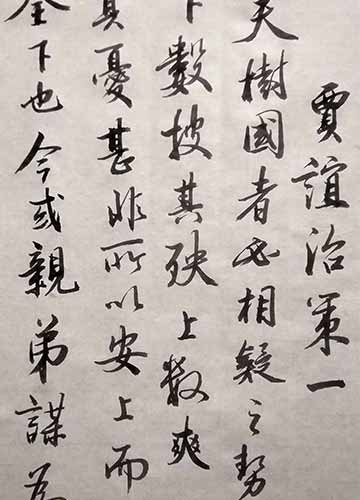 賈誼治策一
天樹國者必相疑之勢
下數被其殃上數爽
其憂甚非所以安上而
全下也今或親弟謀為